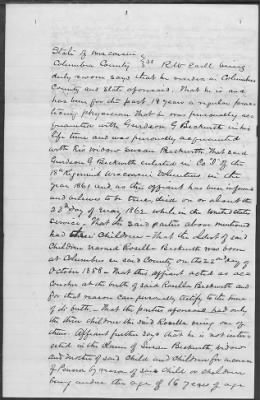 State of Wisconsin }
Columbia County } SS R.W. Earll being
duly sworn says that he resides in Columbus
County and State aforesaid. That he is and
has been for the past 18 years a regular prac-
ticing physician That he was personally ac-
quainted with Gurdson G Beckwith in his
life time and was personally acquainted
with his widow Susan Beckwith That said
Gurdson G Beckwith enlisted in Co "D" of the
18th Regiment Wisconsin Volunteers in the
year 1861 and as this affiant has been informed
and believes to be true, died on or about the
23rd day of May 1862 while in the United States
service. That the said parties above mentioned
had three Children — That the oldest of said
Children named Rosell Beckwith was born
at Columbus in said County on the 22nd day of
October 1858 — That this affiant acted as ac-
coucher at the birth of said Rosella Beckwith and
for that reason can personally testify to the time
of its birth — That the parties aforesaid had only
the three children the said Rosella being one of
them. Affiant further says that he is not inter-
ested in the claim of Susan Beckwith widow
and mother of said Child and Children for increase
of Pension by reason of said Child or Children
being under the age of 16 years of age